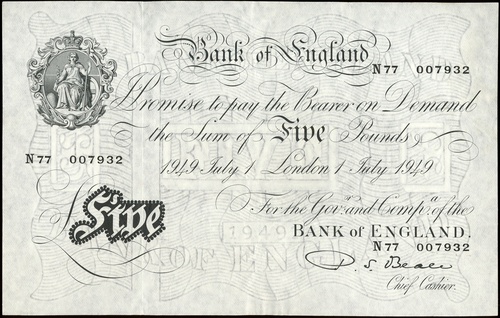 Bank of England
N77 007932
I Promise to pay the Bearer on Demand
the Sum of Five Pounds
N77 007932
1949 July 1 London 1 July 1949
£Five
For the Govr. and Compa. of the
BANK of ENGLAND.
N77 007932
P. S. Beale
Chief Cashier.